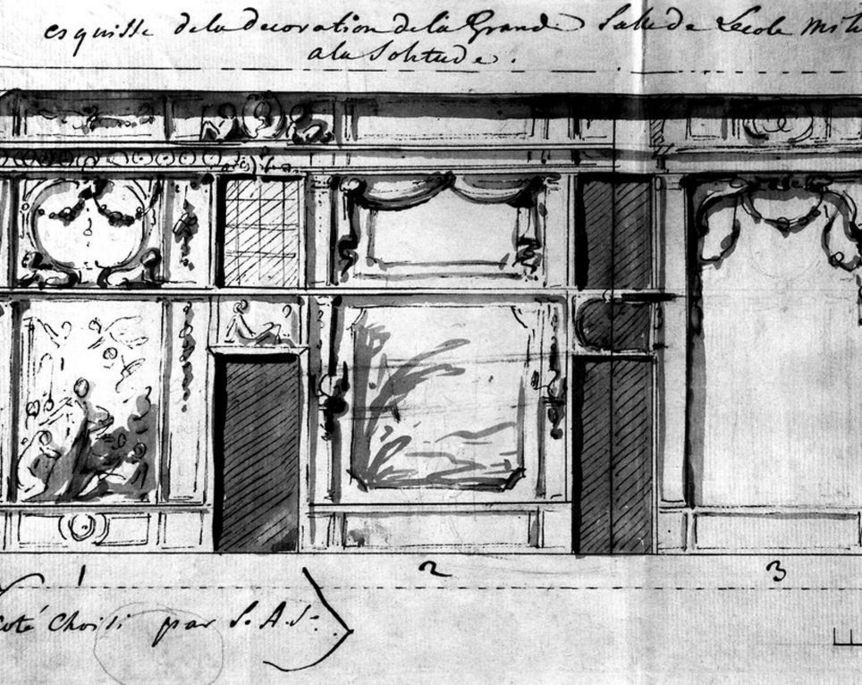 esquisse de la decoration de la Grande Salle de Lecole mili
a la Solitude.
1 2 3
coté choisi par S. A. S.